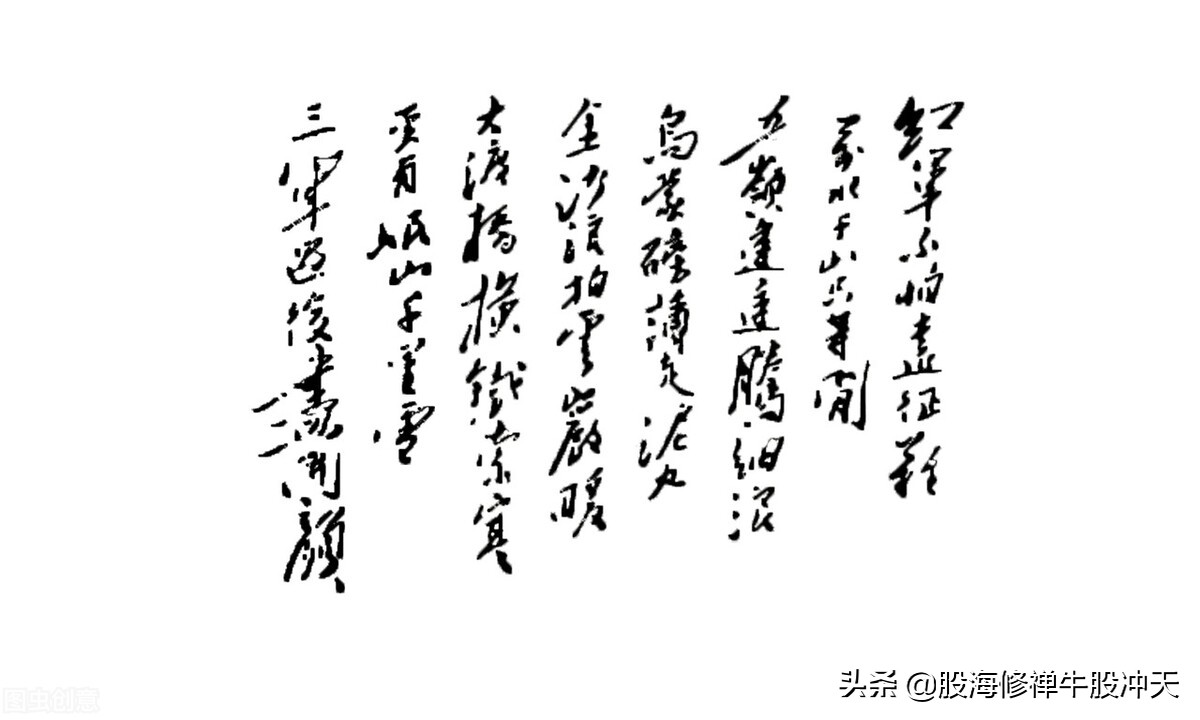 紅軍不怕遠征難
萬水千山只等閒
五嶺逶迤騰細浪
烏蒙磅礴走泥丸
金沙浪拍雲巖暖
大渡橋橫鐵索寒
更喜岷山千里雪
三軍過後盡開顏
图虫创意
头条 @股海修禅牛股冲天